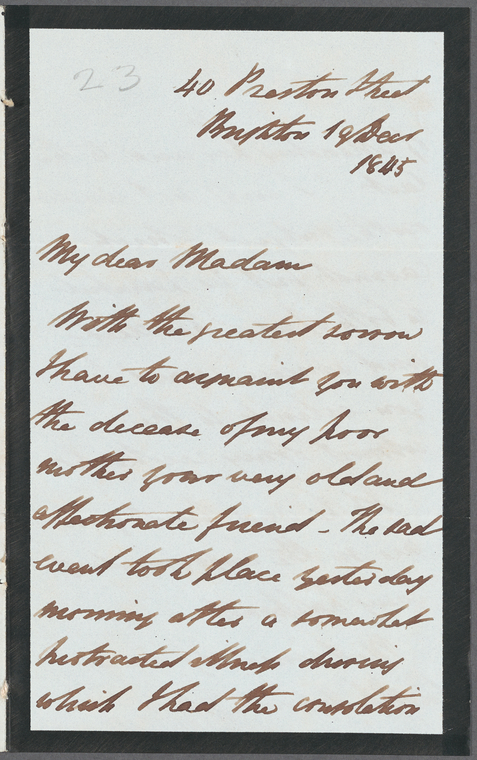 23
40 Preston Street
Brighton 19 Decr
1845
My dear Madam
With the greatest sorrow
I have to acquaint you with
the decease of my poor
mother your very old and
affectionate friend - The sad
event took place yesterday
morning after a somewhat
protracted illness during
which I had the consolation